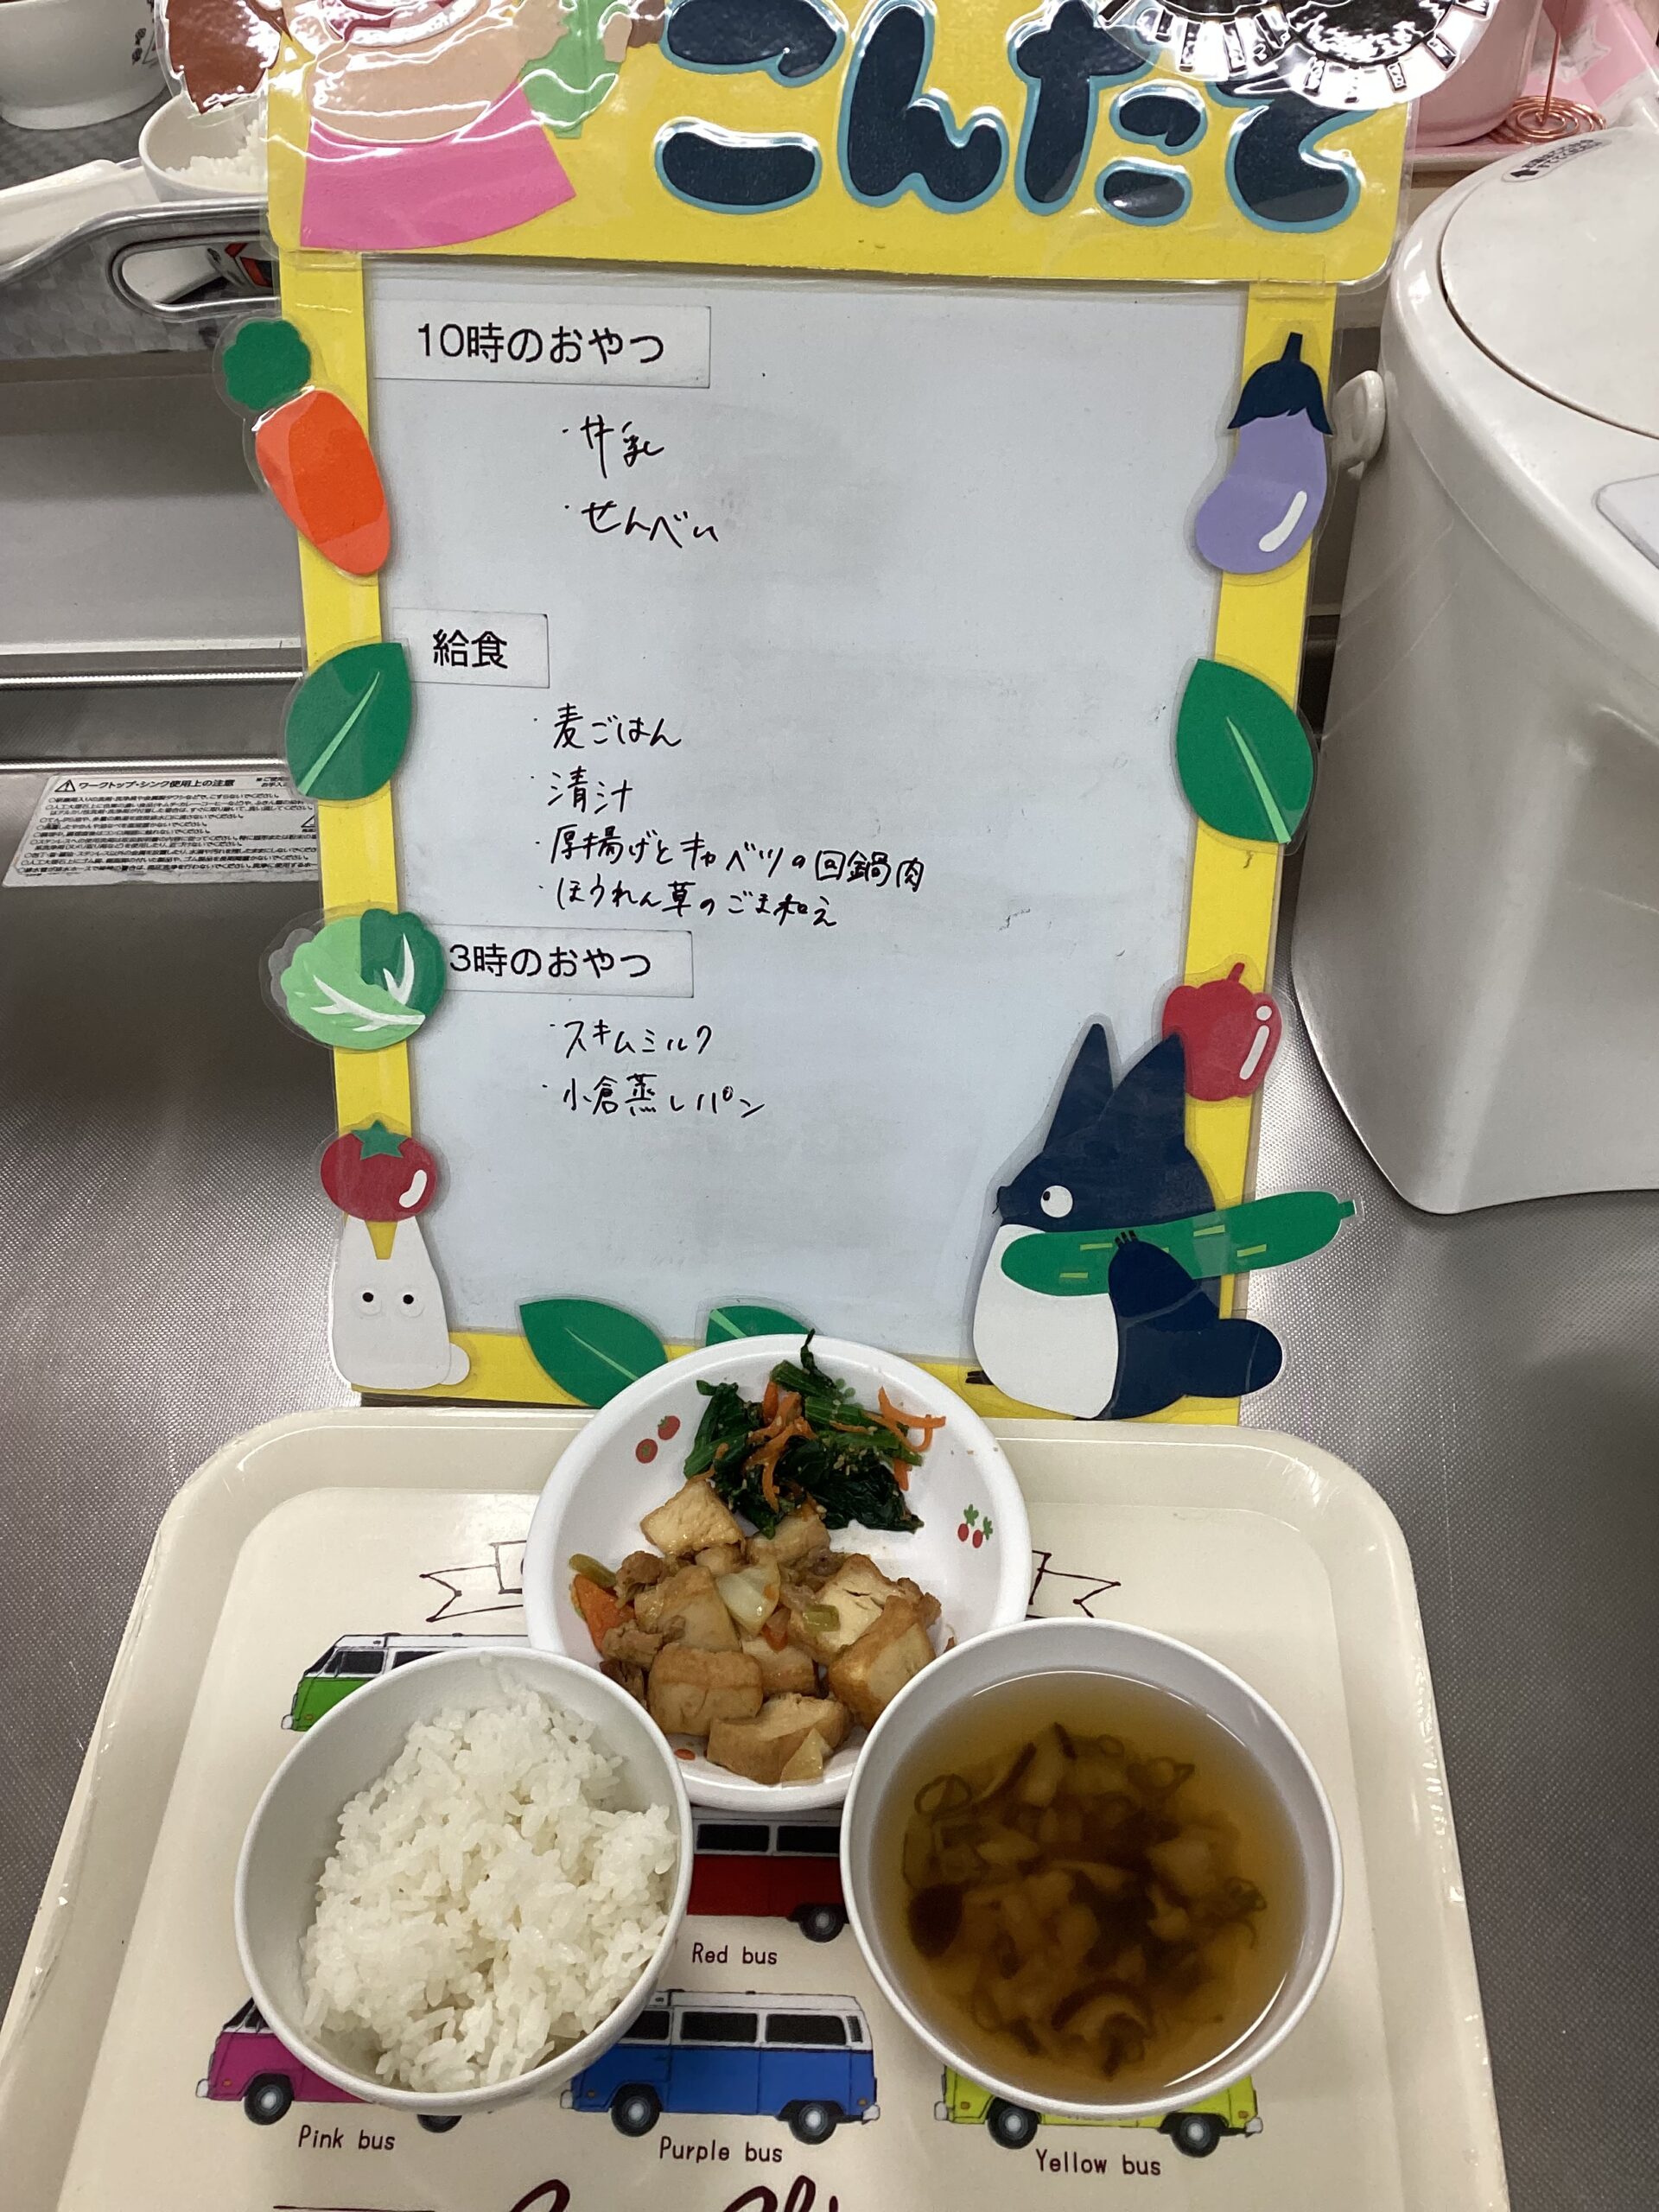 こんだて
10時のおやつ
・牛乳
・せんべい
給食
・麦ごはん
・清汁
・厚揚げとキャベツの回鍋肉
・ほうれん草のごま和え
3時のおやつ
・スキムミルク
・小倉蒸しパン
ワークトップ・シンク使用上の注意
Red bus
Pink bus
Purple bus
Yellow bus